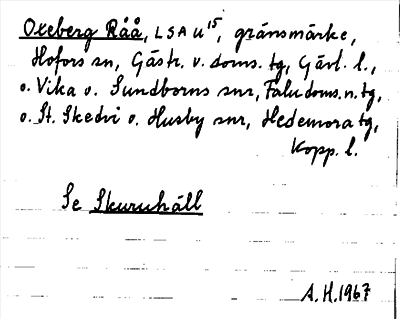 Oxeberg Råå, LSA U 15, gränsmärke,
Hofors sn, Gästr. v. doms. tg, Gävl. l.,
o. Vika o. Sundborns snr, Falu doms. n. tg,
o. St. Skedvi o. Husby snr, Hedemora tg,
Kopp. l.
Se Skuruhäll
A.H. 1967